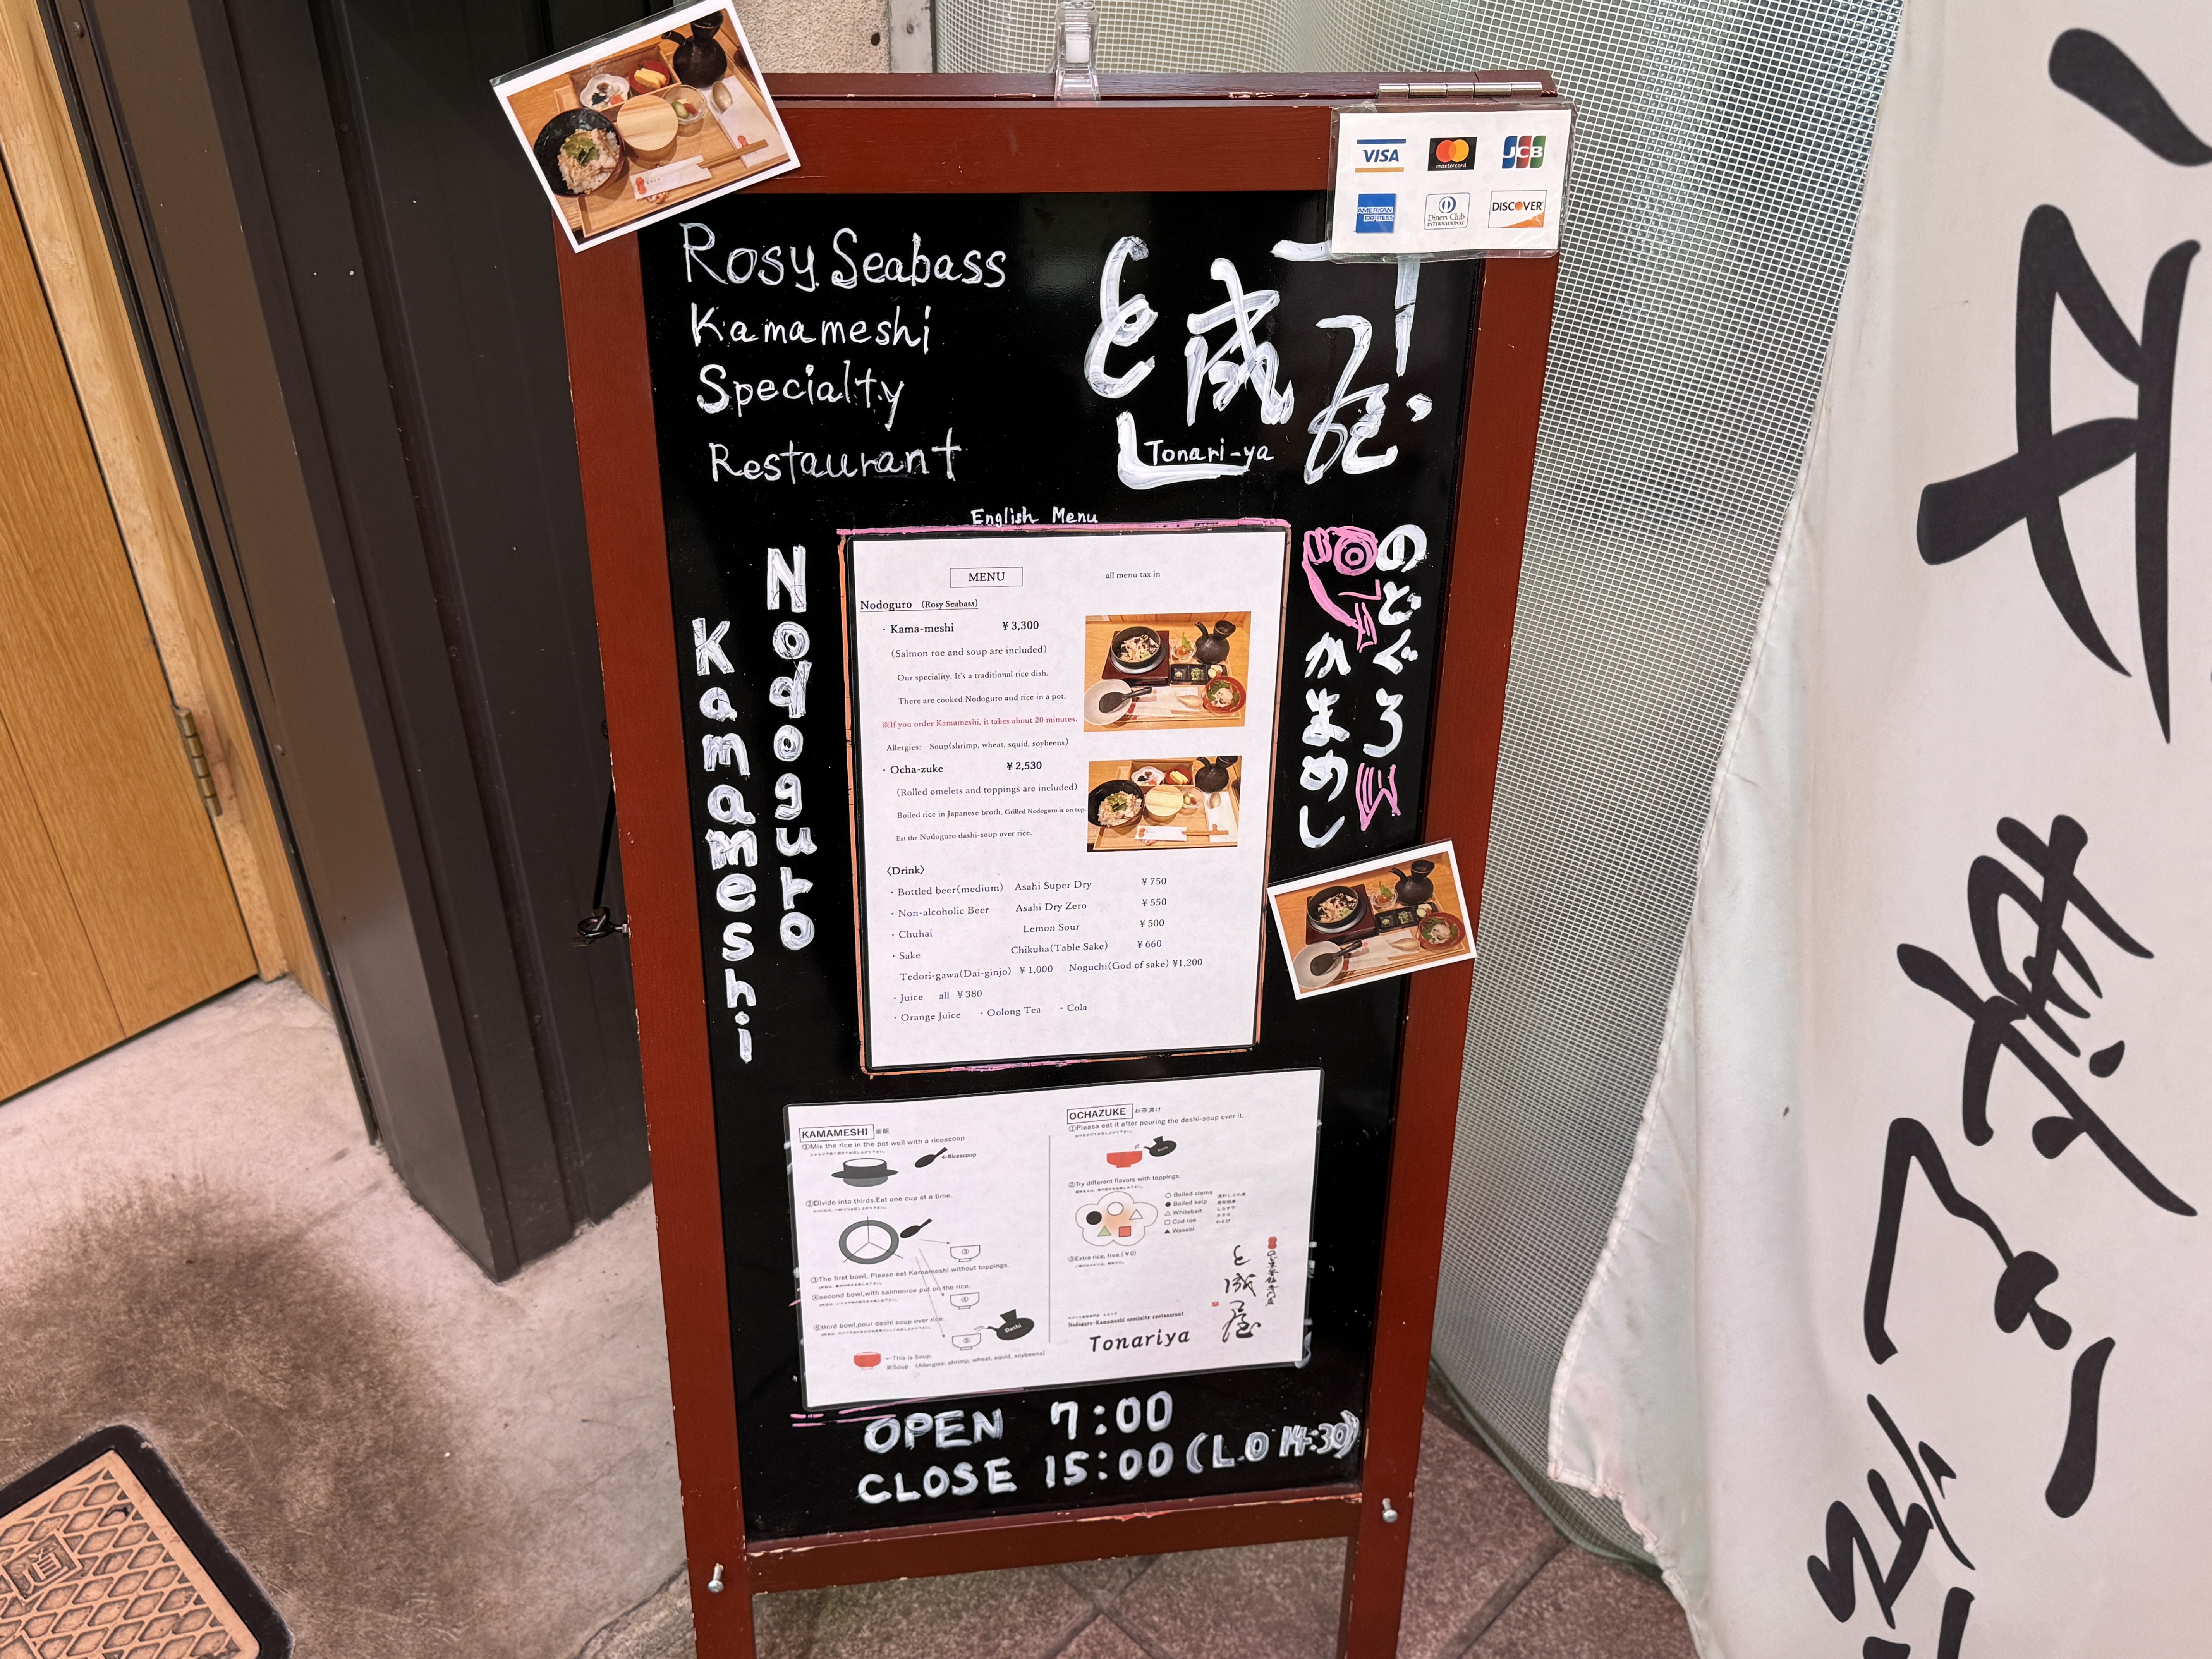 VISA
mastercard
JCB
AMERICAN EXPRESS
Diners Club
INTERNATIONAL
DISCOVER
Rosy Seabass
Kamameshi
Specialty
Restaurant
と成屋
Tonari-ya
English Menu
Nodoguro
Kamameshi
のどぐろ
かまめし
MENU
all menu tax in
Nodoguro (Rosy Seabass)
・Kama-meshi ¥3,300
(Salmon roe and soup are included)
Our speciality. It's a traditional rice dish.
There are cooked Nodoguro and rice in a pot.
※If you order Kamameshi, it takes about 20 minutes.
Allergies: Soup(shrimp, wheat, squid, soybeens)
・Ocha-zuke ¥2,530
(Rolled omelets and toppings are included)
Boiled rice in Japanese broth, Grilled Nodoguro is on top.
Eat the Nodoguro dashi-soup over rice.
〈Drink〉
・Bottled beer(medium) Asahi Super Dry ¥750
・Non-alcoholic Beer Asahi Dry Zero ¥550
・Chuhai Lemon Sour ¥500
・Sake Chikuha(Table Sake) ¥660
Tedori-gawa(Dai-ginjo) ¥1,000 Noguchi(God of sake) ¥1,200
・Juice all ¥380
・Orange Juice ・Oolong Tea ・Cola
KAMAMESHI 釜飯
①Mix the rice in the pot well with a ricescoop
←Ricescoop
②Divide into thirds.Eat one cup at a time.
③
③The first bowl, Please eat Kamameshi without toppings.
④second bowl,with salmonroe put on the rice.
④
⑤third bowl,pour dashi soup over rice.
⑤
Dashi
←This is Soup.
※Soup (Allergies: shrimp, wheat, squid, soybeens)
OCHAZUKE お茶漬け
①Please eat it after pouring the dashi-soup over it.
Dashi
②Try different flavors with toppings.
○ Boiled clams
● Boiled kelp
△ Whitebait
□ Cod roe
▲ Wasabi
③Extra rice, free.(¥0)
と成屋
Nodoguro-Kamameshi specialty restaurant
Tonariya
OPEN 7:00
CLOSE 15:00 (L.O 14:30)